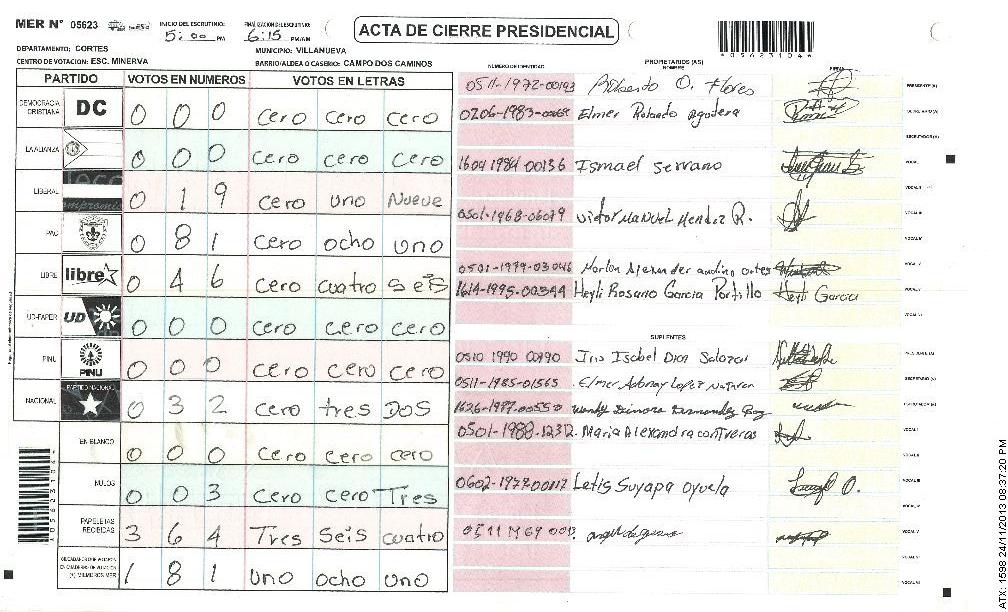 MER N° 05623
INICIO DEL ESCRUTINIO: 5:00 PM
FINALIZACION DEL ESCRUTINIO: 6:15 PM/AM
ACTA DE CIERRE PRESIDENCIAL
*05623104*
DEPARTAMENTO: CORTES
MUNICIPIO: VILLANUEVA
CENTRO DE VOTACION: ESC. MINERVA
BARRIO/ALDEA O CASERIO: CAMPO DOS CAMINOS
PARTIDO VOTOS EN NUMEROS VOTOS EN LETRAS
DEMOCRACIA CRISTIANA DC 0 0 0 cero cero cero
LA ALIANZA 0 0 0 cero cero cero
LIBERAL 0 1 9 cero uno Nueve
PAC 0 8 1 cero ocho uno
LIBRE libre 0 4 6 cero cuatro seis
UD-FAPER UD 0 0 0 cero cero cero
PINU PINU 0 0 0 cero cero cero
NACIONAL PARTIDO NACIONAL 0 3 2 cero tres DOS
EN BLANCO 0 0 0 cero cero cero
NULOS 0 0 3 cero cero Tres
PAPELETAS RECIBIDAS 3 6 4 Tres seis cuatro
1 8 1 uno ocho uno
NUMERO DE IDENTIDAD
PROPIETARIOS (AS)
NOMBRE
FIRMA
0511-1972-00193 Rolando O. Flores
PRESIDENTE(A)
Elmer Rolando
SECRETARIO(A)
1604 1994 00136 Ismael Serrano
VOCAL I
0501-1968-06079 Victor Manuel Mendez R.
VOCAL III
0501-1979-03046
1614-1995-00344 Heyli Rosario Garcia Portillo Heyli Garcia
SUPLENTES
0510 1990 00990 Isabel
PRESIDENTE(A)
0511-1985-01565 Elmer Lopez
SECRETARIO(A)
1626-1977-00550
0501-1988-12312 Maria Alexandra contreras
VOCAL I
0602-1977-00117 Letis Suyapa oyuela
VOCAL III
ATX: 1598 24/11/2013 08:37:20 PM